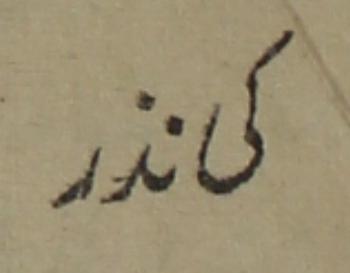 کانذر